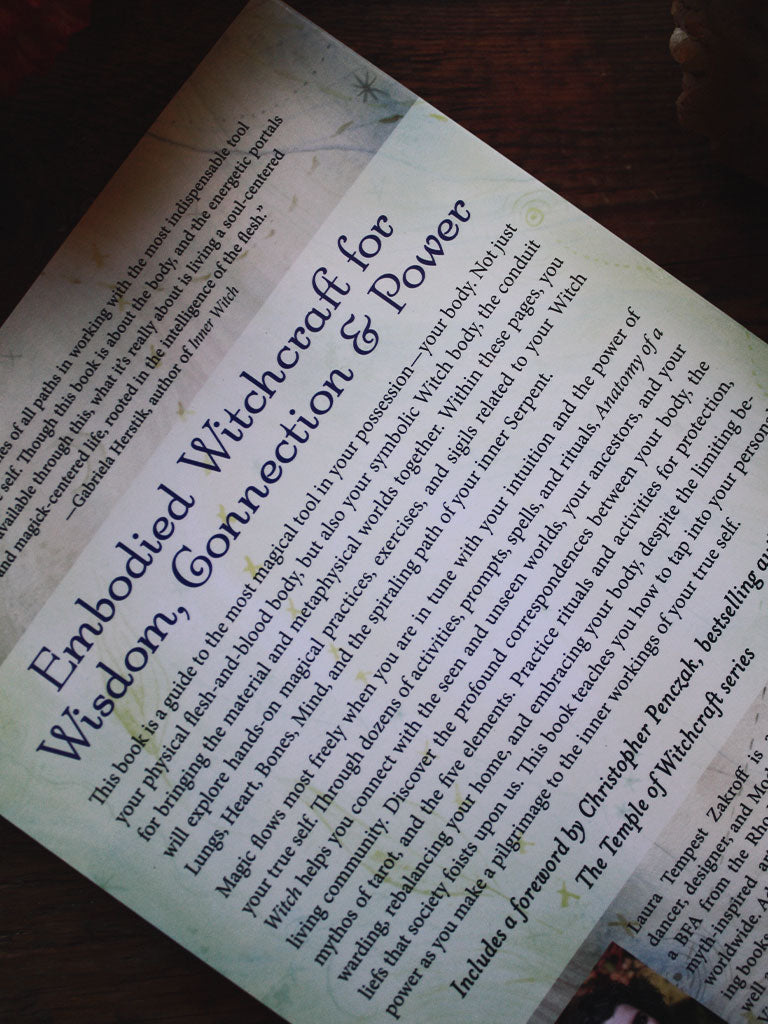 es of all paths in working with the most indispensable tool
self. Though this book is about the body, and the energetic portals
available through this, what it's really about is living a soul-centered
and magick-centered life, rooted in the intelligence of the flesh."
—Gabriela Herstik, author of Inner Witch
Embodied Witchcraft for
Wisdom, Connection & Power
This book is a guide to the most magical tool in your possession—your body. Not just
your physical flesh-and-blood body, but also your symbolic Witch body, the conduit
for bringing the material and metaphysical worlds together. Within these pages, you
will explore hands-on magical practices, exercises, and sigils related to your Witch
Lungs, Heart, Bones, Mind, and the spiraling path of your inner Serpent.
Magic flows most freely when you are in tune with your intuition and the power of
your true self. Through dozens of activities, prompts, spells, and rituals, Anatomy of a
Witch helps you connect with the seen and unseen worlds, your ancestors, and your
living community. Discover the profound correspondences between your body, the
mythos of tarot, and the five elements. Practice rituals and activities for protection,
warding, rebalancing your home, and embracing your body, despite the limiting be-
liefs that society foists upon us. This book teaches you how to tap into your personal
power as you make a pilgrimage to the inner workings of your true self.
Includes a foreword by Christopher Penczak, bestselling au
The Temple of Witchcraft series
Laura Tempest Zakroff is a
dancer, designer, and Mod
a BFA from the Rho
myth-inspired ar
worldwide. A
ing books
well a